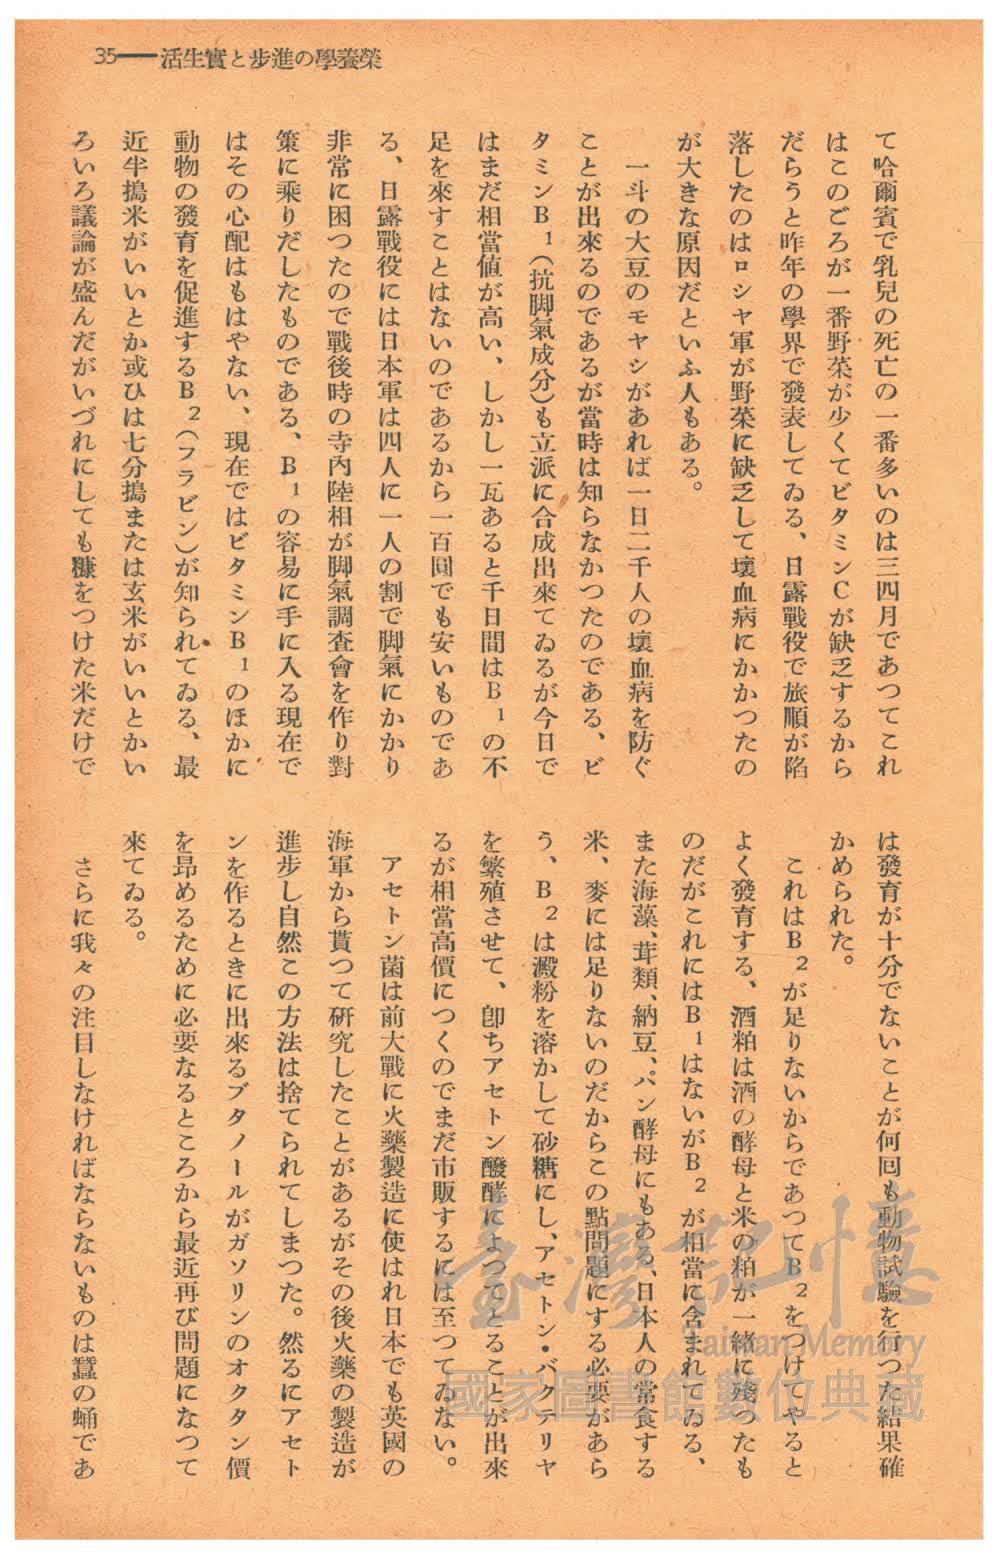 榮養學の進步と實生活——35
て哈爾賓で乳兒の死亡の一番多いのは三四月であつてこれ
はこのごろが一番野菜が少くてビタミンCが缺乏するから
だらうと昨年の學界で發表してゐる、日露戰役で旅順が陷
落したのはロシヤ軍が野菜に缺乏して壞血病にかかつたの
が大きな原因だといふ人もある。
一斗の大豆のモヤシがあれば一日二千人の壞血病を防ぐ
ことが出來るのであるが當時は知らなかつたのである、ビ
タミンB1(抗脚氣成分)も立派に合成出來てゐるが今日で
はまだ相當値が高い、しかし一瓦あると千日間はB1の不
足を來すことはないのであるから一百圓でも安いものであ
る、日露戰役には日本軍は四人に一人の割で脚氣にかかり
非常に困つたので戰後時の寺內陸相が脚氣調査會を作り對
策に乘りだしたものである、B1の容易に手に入る現在で
はその心配はもはやない、現在ではビタミンB1のほかに
動物の發育を促進するB2(フラビン)が知られてゐる、最
近半搗米がいいとか或ひは七分搗または玄米がいいとかい
ろいろ議論が盛んだがいづれにしても糠をつけた米だけで
は發育が十分でないことが何回も動物試驗を行つた結果確
かめられた。
これはB2が足りないからであつてB2をつけてやると
よく發育する、酒粕は酒の酵母と米の粕が一緒に殘つたも
のだがこれにはB1はないがB2が相當に含まれてゐる、
また海藻、茸類、納豆、パン酵母にもある、日本人の常食する
米、麥には足りないのだからこの點問題にする必要があら
う、B2は澱粉を溶かして砂糖にし、アセトン・バクテリヤ
を繁殖させて、卽ちアセトン醱酵によつてとることが出來
るが相當高價につくのでまだ市販するには至つてゐない。
アセトン菌は前大戰に火藥製造に使はれ日本でも英國の
海軍から貰つて硏究したことがあるがその後火藥の製造が
進步し自然この方法は捨てられてしまつた。然るにアセト
ンを作るときに出來るブタノールがガソリンのオクタン價
を昂めるために必要なるところから最近再び問題になつて
來てゐる。
さらに我々の注目しなければならないものは蠶の蛹であ
臺灣記憶
Taiwan Memory
國家圖書館數位典藏